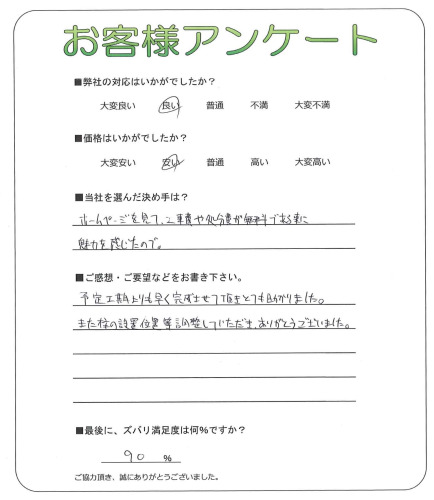 お客様アンケート
■弊社の対応はいかがでしたか？
大変良い 良い 普通 不満 大変不満
■価格はいかがでしたか？
大変安い 安い 普通 高い 大変高い
■当社を選んだ決め手は？
ホームページを見て、工事費や処分費が無料である事に
魅力を感じたので。
■ご感想・ご要望などをお書き下さい。
予定工期よりも早く完成させて頂きとても助かりました。
また柱の設置位置等調整していただき、ありがとうございました。
■最後に、ズバリ満足度は何%ですか？
90 %
ご協力頂き、誠にありがとうございました。